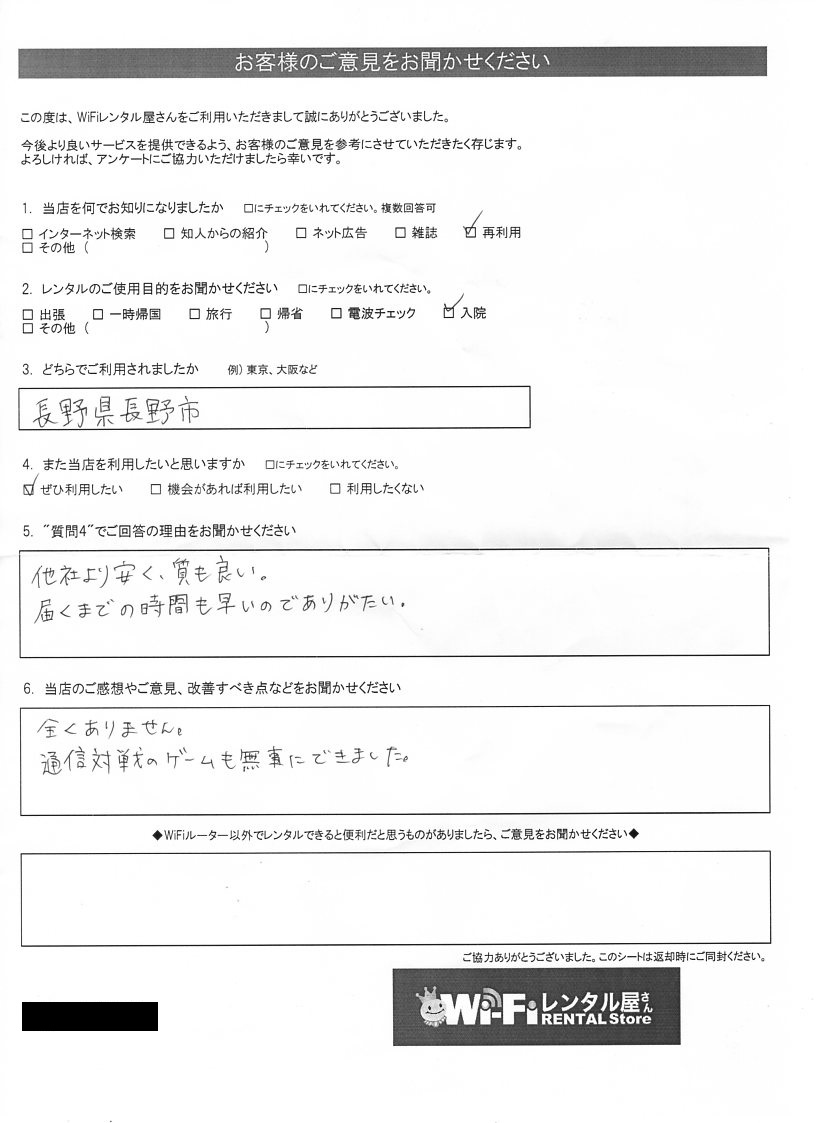 お客様のご意見をお聞かせください
この度は、WiFiレンタル屋さんをご利用いただきまして誠にありがとうございました。
今後より良いサービスを提供できるよう、お客様のご意見を参考にさせていただきたく存じます。
よろしければ、アンケートにご協力いただけましたら幸いです。
1. 当店を何でお知りになりましたか □にチェックをいれてください。複数回答可
□ インターネット検索 □ 知人からの紹介 □ ネット広告 □ 雑誌 ☑ 再利用
□ その他 ( )
2. レンタルのご使用目的をお聞かせください □にチェックをいれてください。
□ 出張 □ 一時帰国 □ 旅行 □ 帰省 □ 電波チェック ☑ 入院
□ その他 ( )
3. どちらでご利用されましたか 例) 東京、大阪など
長野県長野市
4. また当店を利用したいと思いますか □にチェックをいれてください。
☑ ぜひ利用したい □ 機会があれば利用したい □ 利用したくない
5. “質問4”でご回答の理由をお聞かせください
他社より安く、質も良い。
届くまでの時間も早いのでありがたい。
6. 当店のご感想やご意見、改善すべき点などをお聞かせください
全くありません。
通信対戦のゲームも無事にできました。
◆WiFiルーター以外でレンタルできると便利だと思うものがありましたら、ご意見をお聞かせください◆
ご協力ありがとうございました。このシートは返却時にご同封ください。
Wi-Fiレンタル屋さん
RENTAL Store